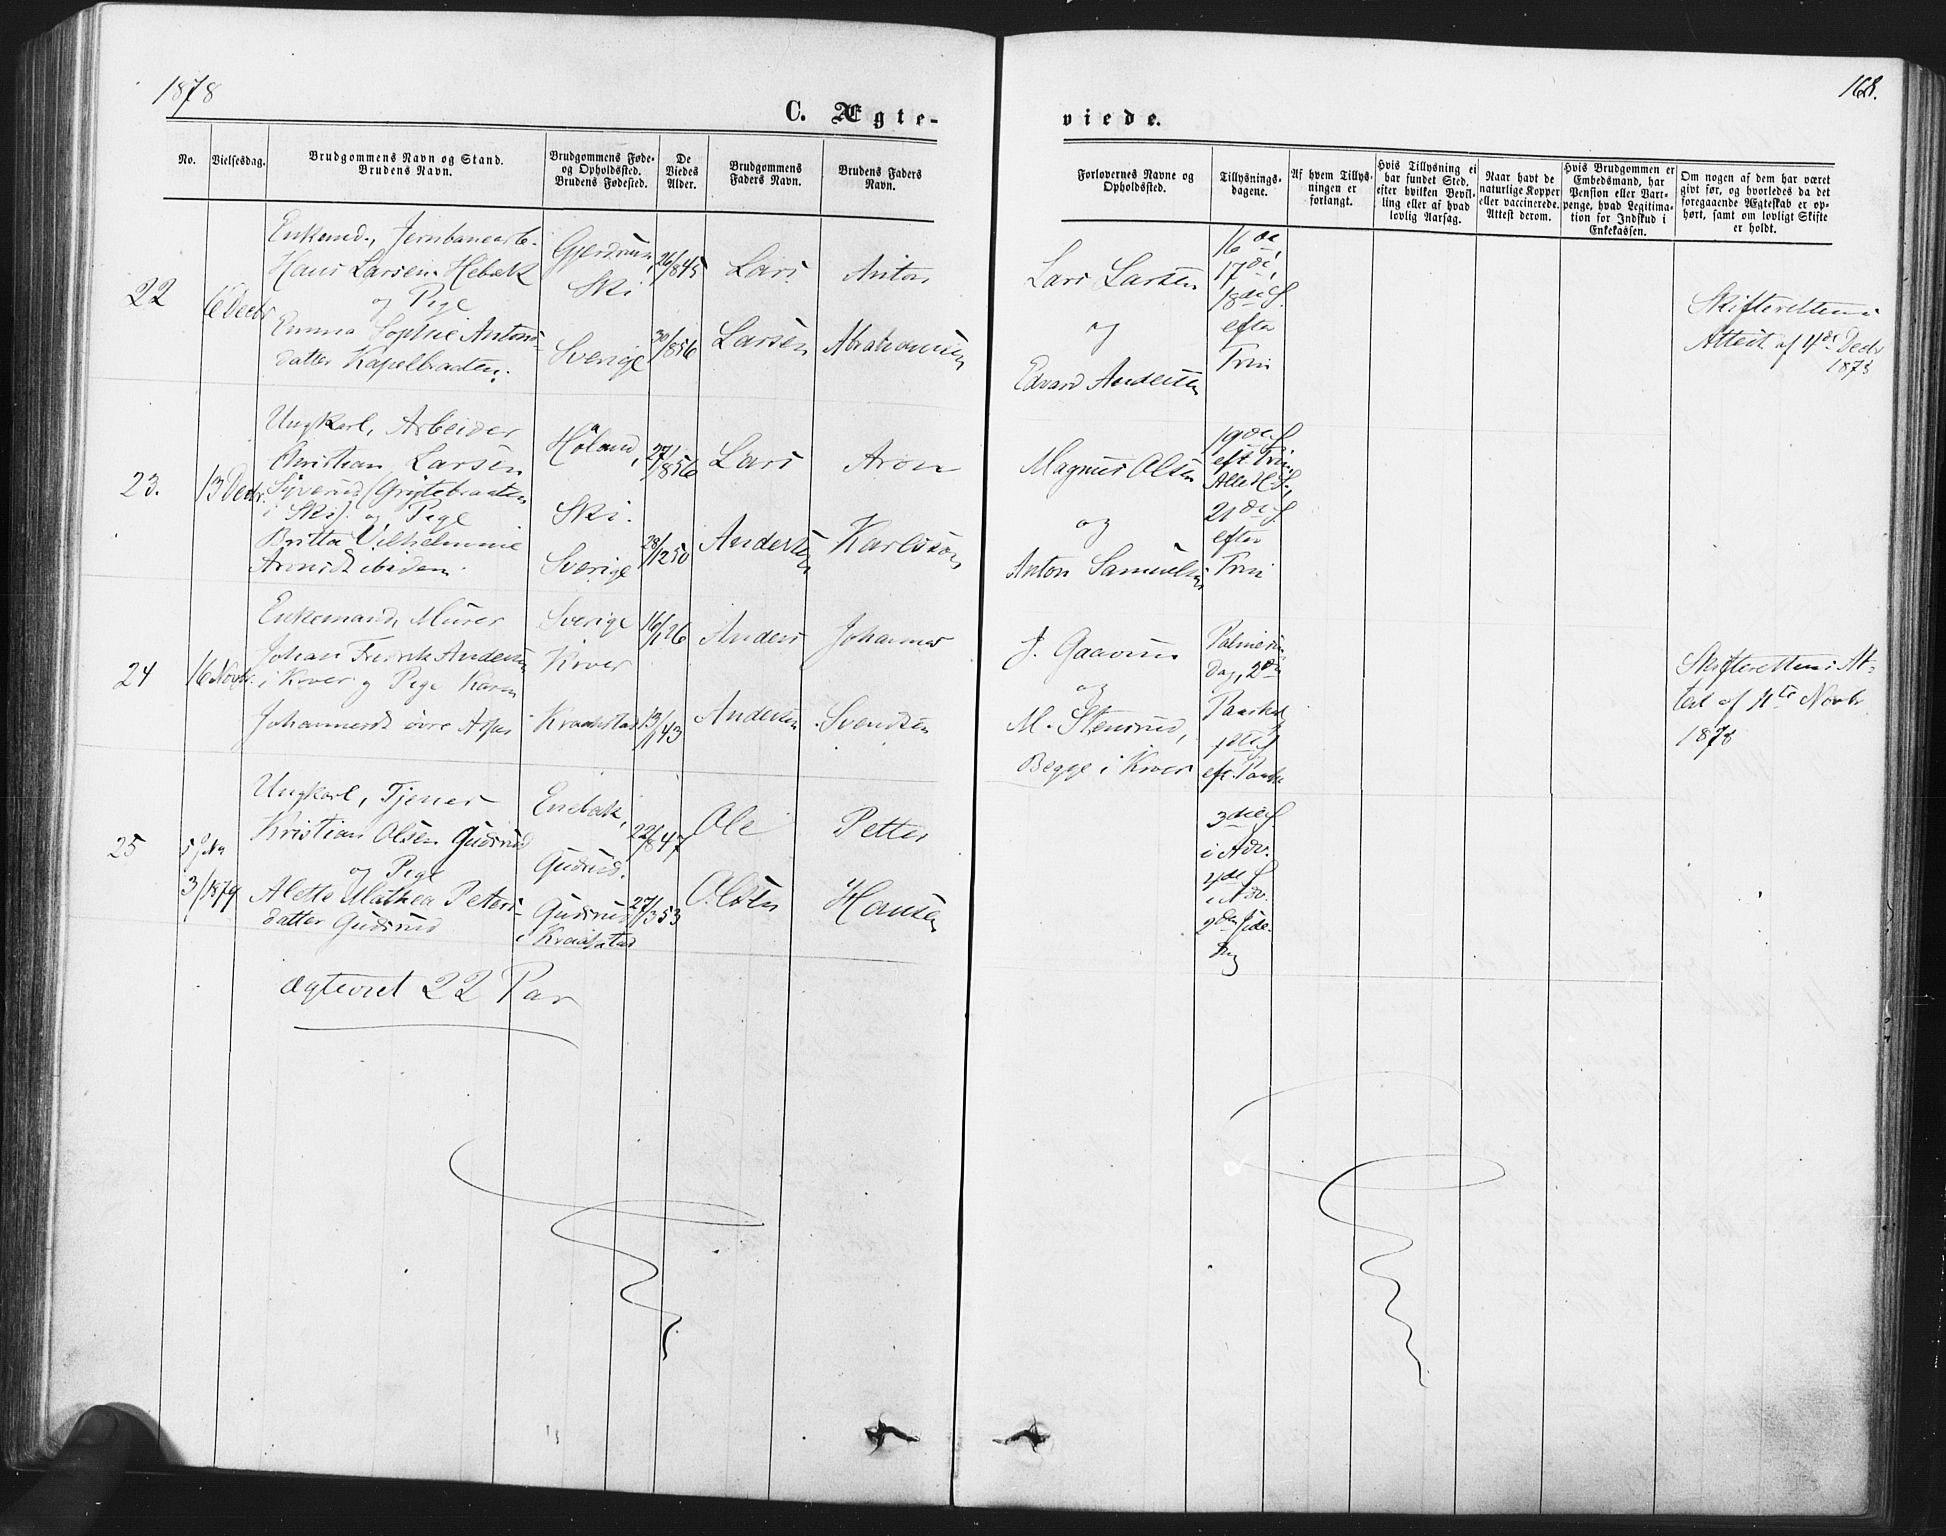 1878
168.
C. Ægte-
viede.
No.
Vielsesdag.
Brudgommens Navn og Stand.
Brudens Navn.
Brudgommens Føde-
og Opholdssted.
Brudens Fødested.
De
Viedes
Alder.
Brudgommens
Faders Navn.
Brudens Faders
Navn.
Forlovernes Navne og
Opholdssted.
Tillysnings-
dagene.
Af hvem Tillys-
ningen er
forlangt.
Hvis Tillysning ei
har fundet Sted,
efter hvilken Bevil-
ling eller af hvad
lovlig Aarsag.
Naar havt de
naturlige Kopper
eller vaccinerede.
Attest derom.
Hvis Brudgommen er
Embedsmand, har
Pension eller Vart-
penge, hvad Legitima-
tion for Indskud i
Enkekassen.
Om nogen af dem har været
givt før, og hvorledes da det
foregaaende Ægteskab er op-
hørt, samt om lovligt Skifte
er holdt.
22
6 Decbr
Enkemd., Jernbanearb.
Hans Larsen Hebæk
og Pige
Emma Sophie Antons-
datter Kapelbraaten.
Gjerdrum,
Ski
Sverige
26/845
30/856
Lars
Larsen
Anton
Abrahamsen
Lars Larsen
og
Edvard Andersen
16de,
17de,
18de S.
efter
Trin
Skifterettens
Attest af 4de Decbr
1878
23.
13 Decbr.
Ungkarl, Arbeider
Christian Larsen
Syverud (Grytebraaten
i Ski) og Pige
Britta Vilhelmine
Aronsdt ibidem.
Høland,
Ski.
Sverige
27/1856
28/1250
Lars
Andersen
Aron
Karlsson
Magnus Olsen
og
Anton Samuelsen
19de S
eft Trin.
Alle H. S.,
21de S
efter
Trin
24
16 Novbr.
Enkemand, Murer
Johan Fredrik Andersen
i Kroer og Pige Karen
Johannesdt øvre Asper
Sverige
Kroer
Kraakstad
16/126
13/43
Anders
Andersen
Johannes
Svendsen
J. Gaarum
og
M. Stensrud,
Begge i Kroer
Palmesøn
dag, 2den
Paaskd
1ste S
eft. Paaske
Skifterettens At-
test af 4de Novbr
1878
25
3/1879
Ungkarl, Tjener
Kristian Olsen Gudsrud
og Pige
Alette Mathea Peters-
datter Gudsrud
Enebak,
Gudsrud.
Gudsrud
i Kraakstad
22/847
27/353
Ole
Olsen
Petter
Hansen
3die S
i Adv.
4de S
i Adv.
2den Jule-
dag
Ægteviet 22 Par